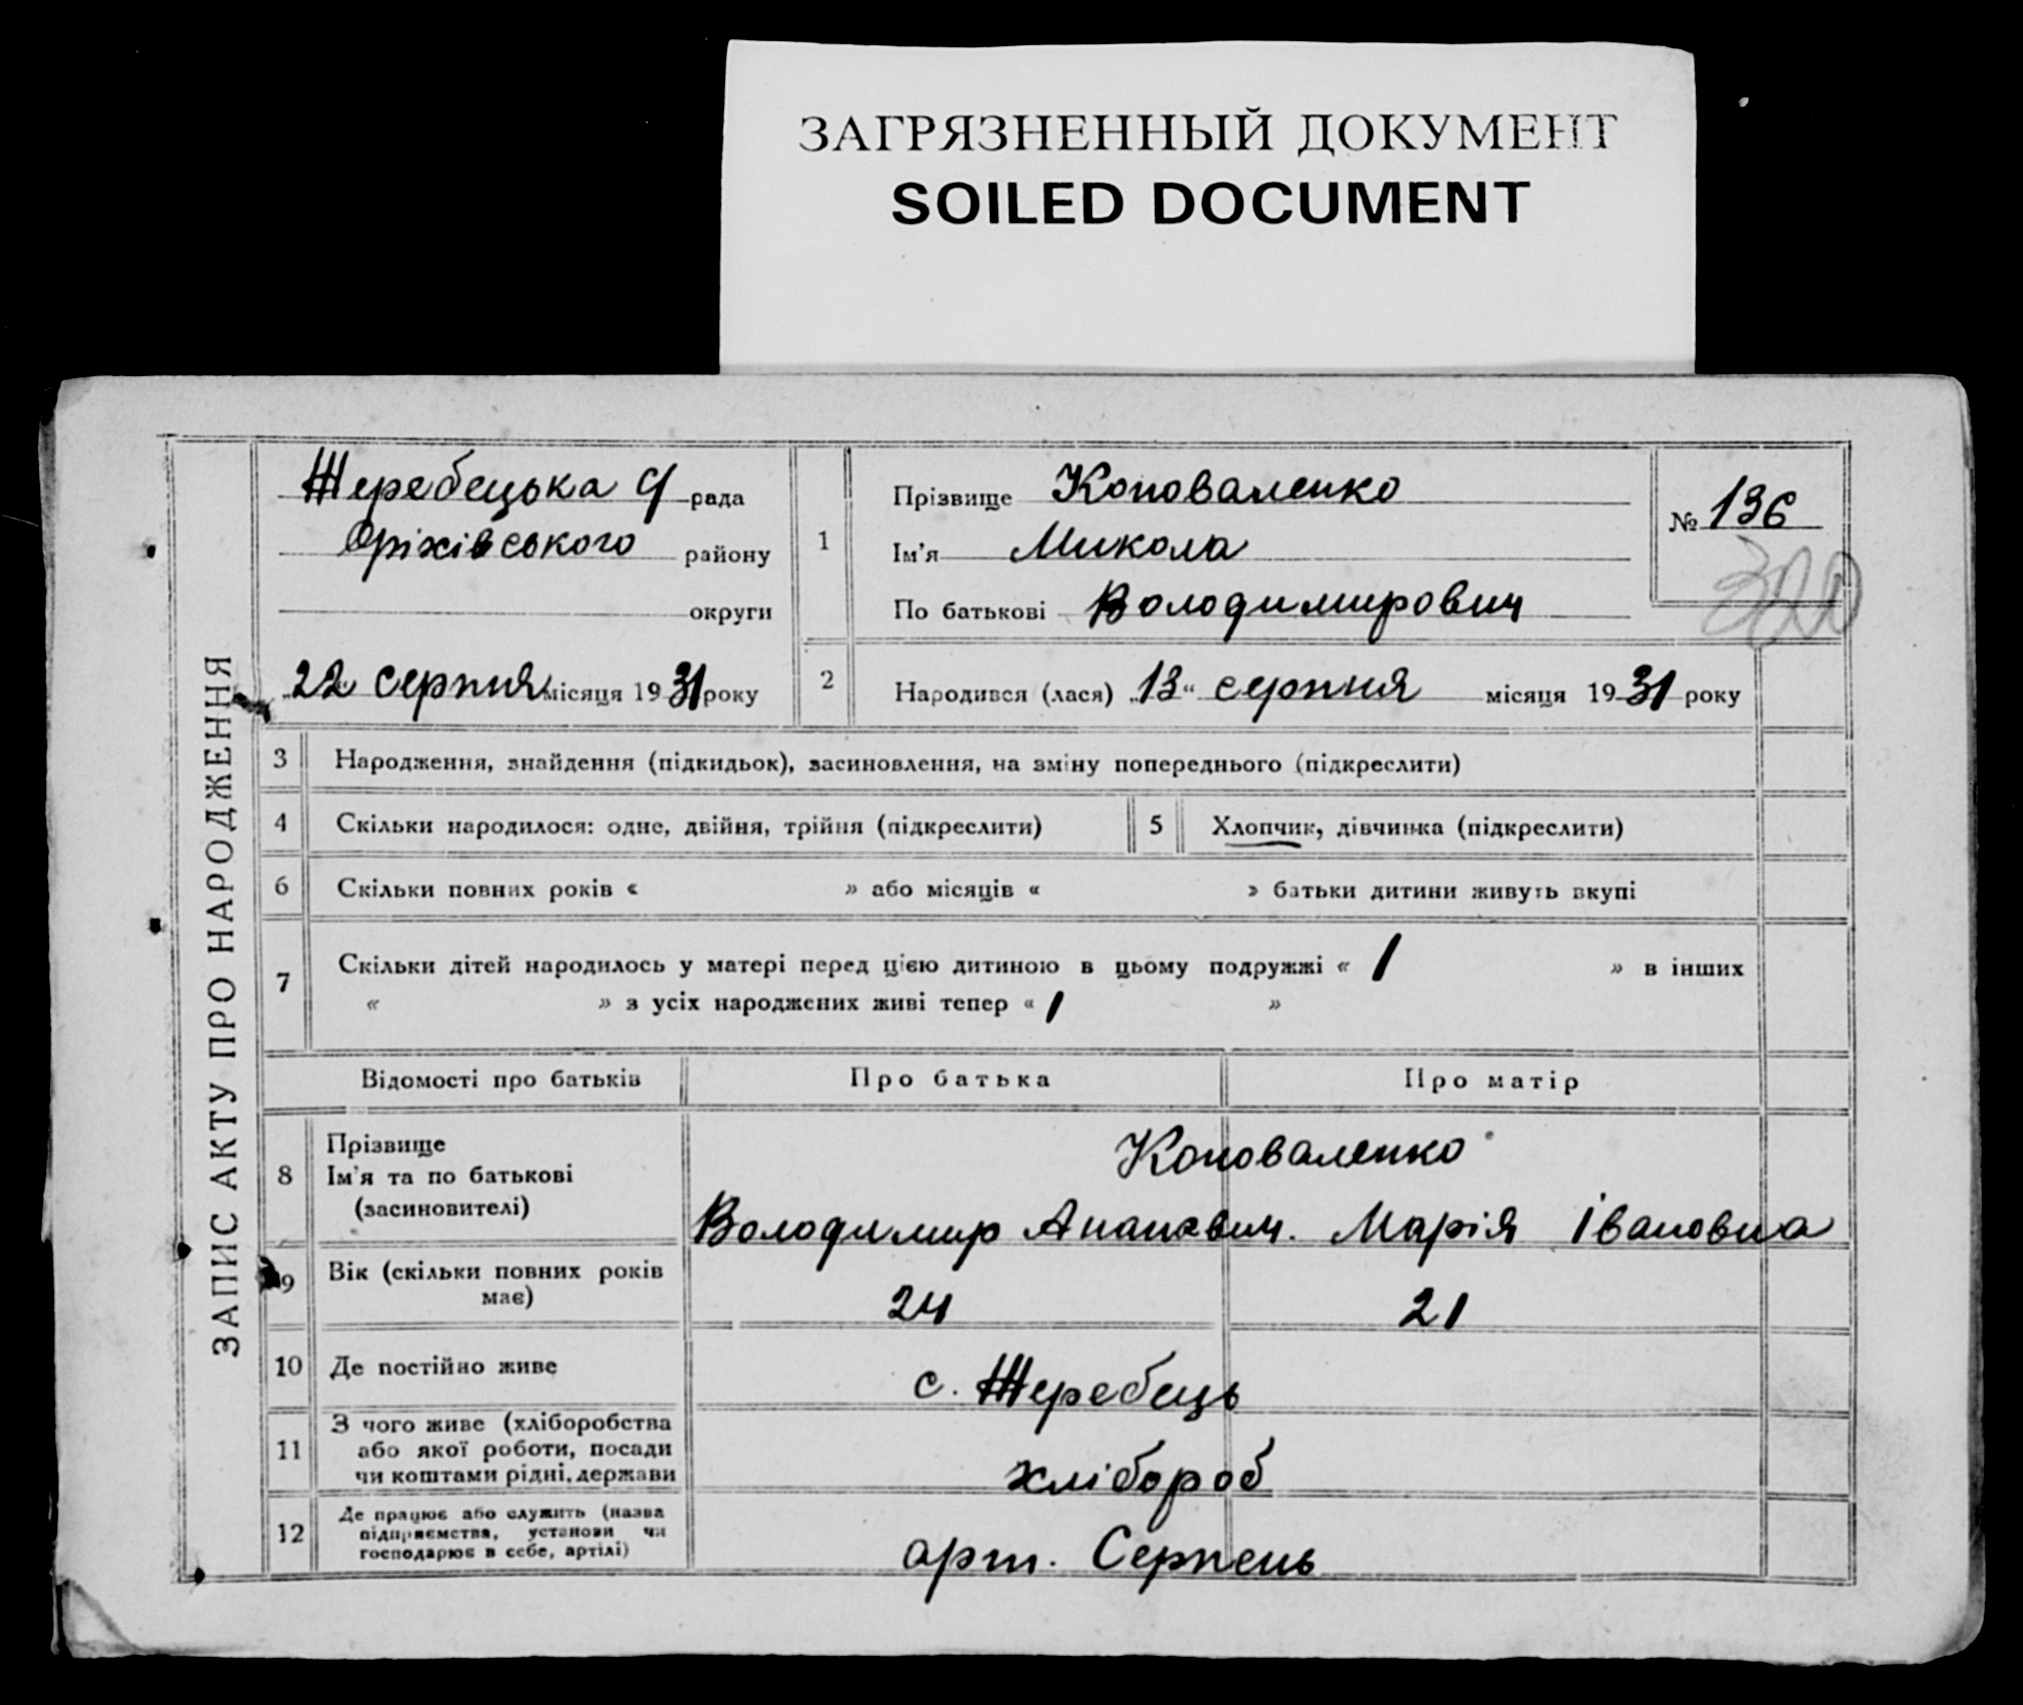 ЗАГРЯЗНЕННЫЙ ДОКУМЕНТ
SOILED DOCUMENT
ЗАПИС АКТУ ПРО НАРОДЖЕННЯ
Жеребецька с/ рада
Оріхівського району
округи
22 серпня місяця 1931 року
1
Прізвище Коноваленко
Ім'я Микола
По батькові Володимирович
№ 136
2 Народився (лася) „13“ серпня місяця 1931 року
3 Народження, знайдення (підкидьок), засиновлення, на зміну попереднього (підкреслити)
4 Скільки народилося: одне, двійня, трійня (підкреслити) 5 Хлопчик, дівчинка (підкреслити)
6 Скільки повних років « » або місяців « » батьки дитини живуть вкупі
7 Скільки дітей народилось у матері перед цією дитиною в цьому подружжі « 1 » в інших
« » з усіх народжених живі тепер « 1 »
Відомості про батьків Про батька Про матір
8 Прізвище
Ім'я та по батькові
(засиновителі)
Коноваленко
Володимир Марія Івановна
9 Вік (скільки повних років
має)
24 21
10 Де постійно живе с. Жеребець
11 З чого живе (хліборобства
або якої роботи, посади
чи коштами рідні, держави
хлібороб
12 Де працює або служить (назва
підприємства, установи чи
господарює в себе, артілі)
арт. Серпень